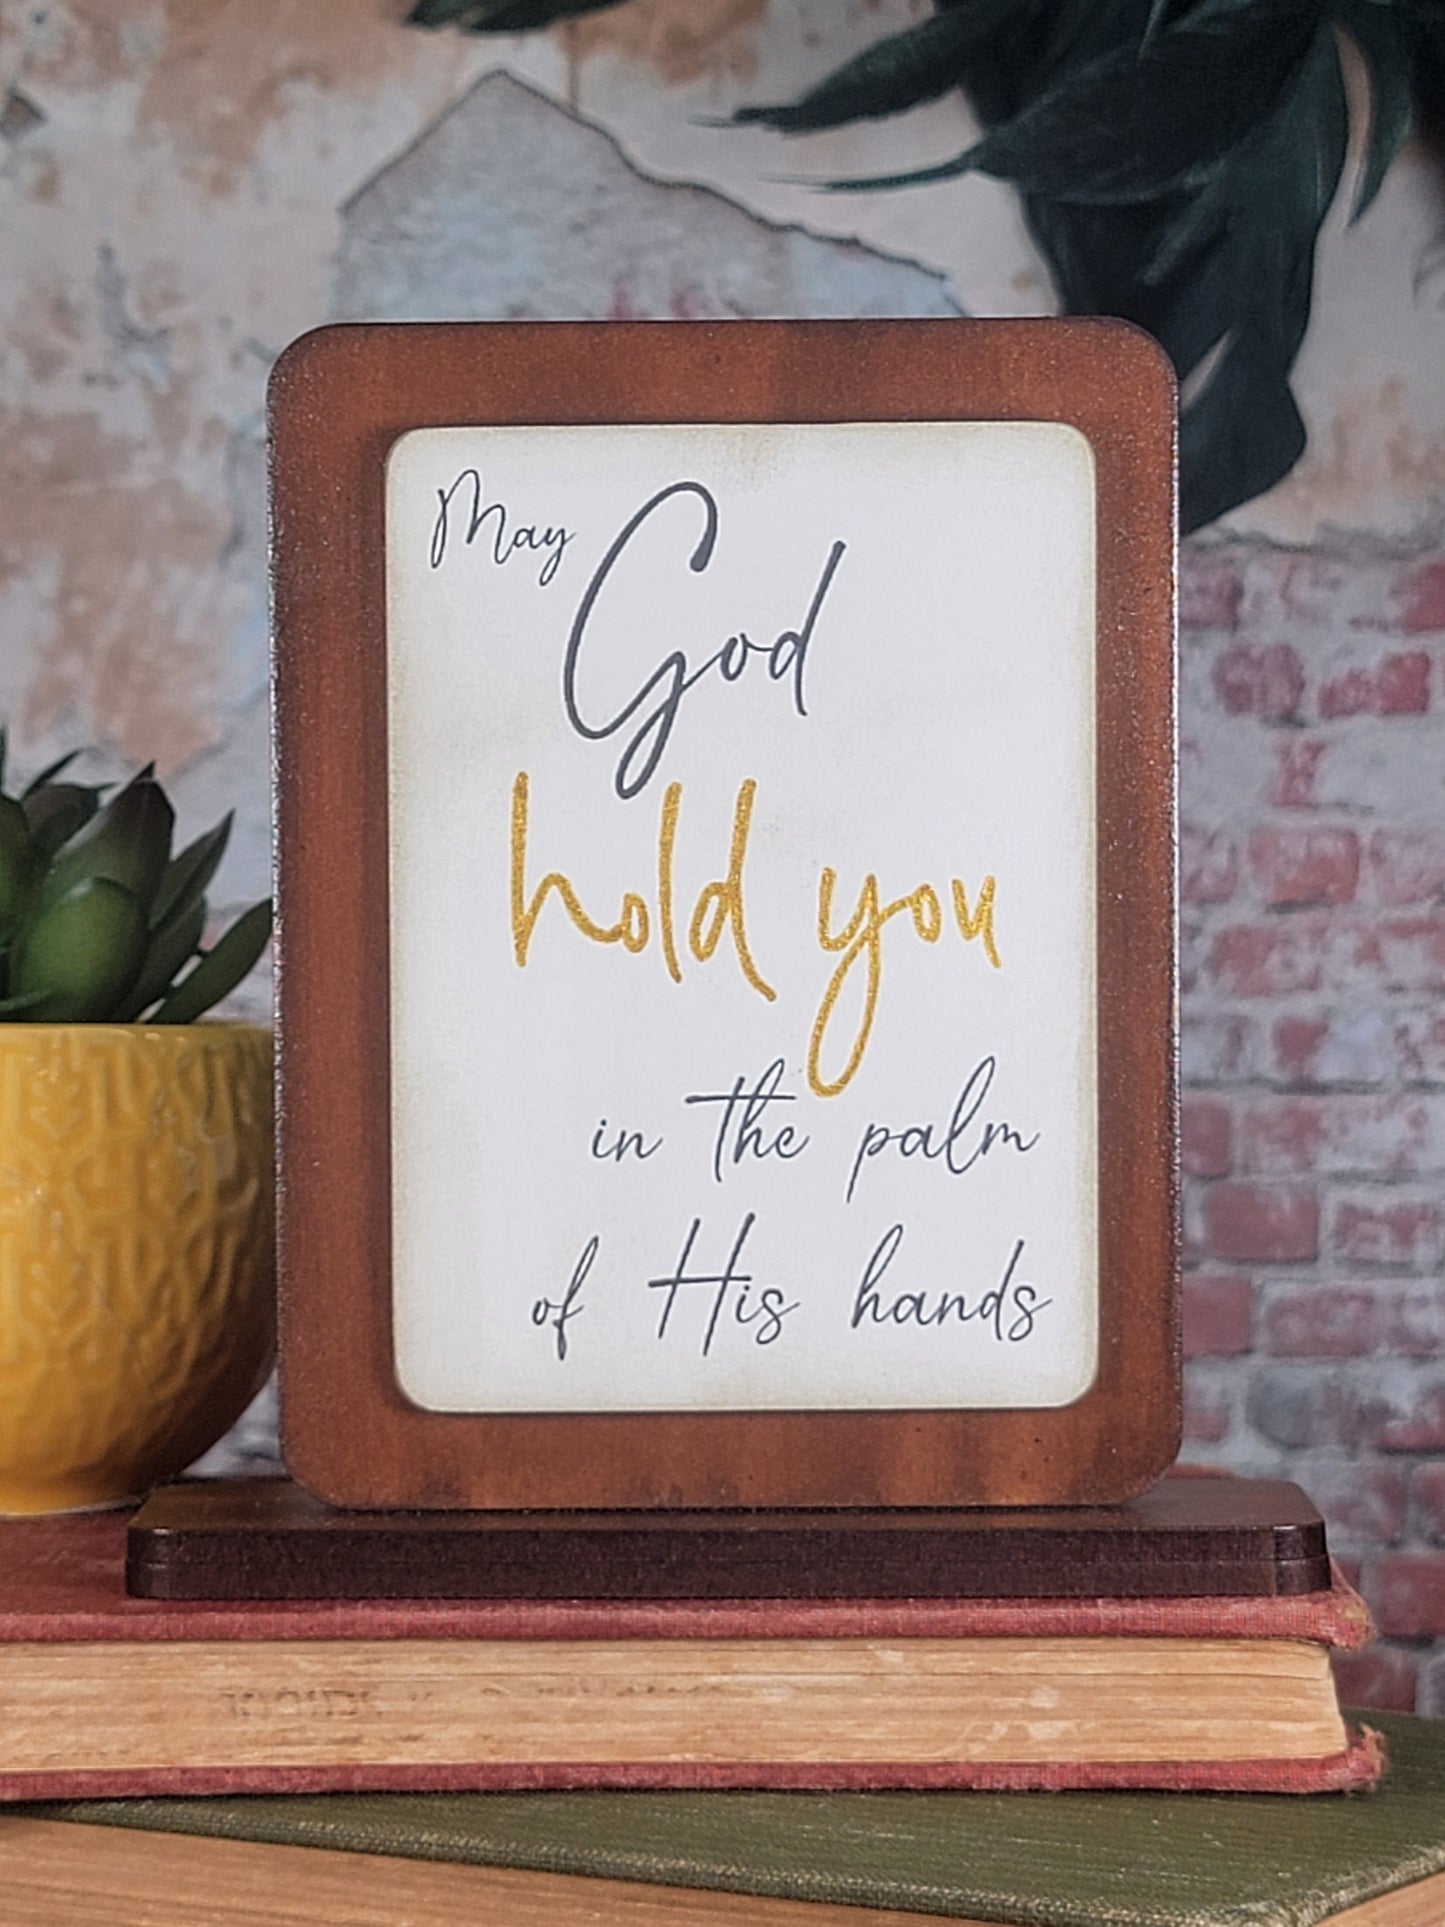 May God
hold you
in the palm
of His hands